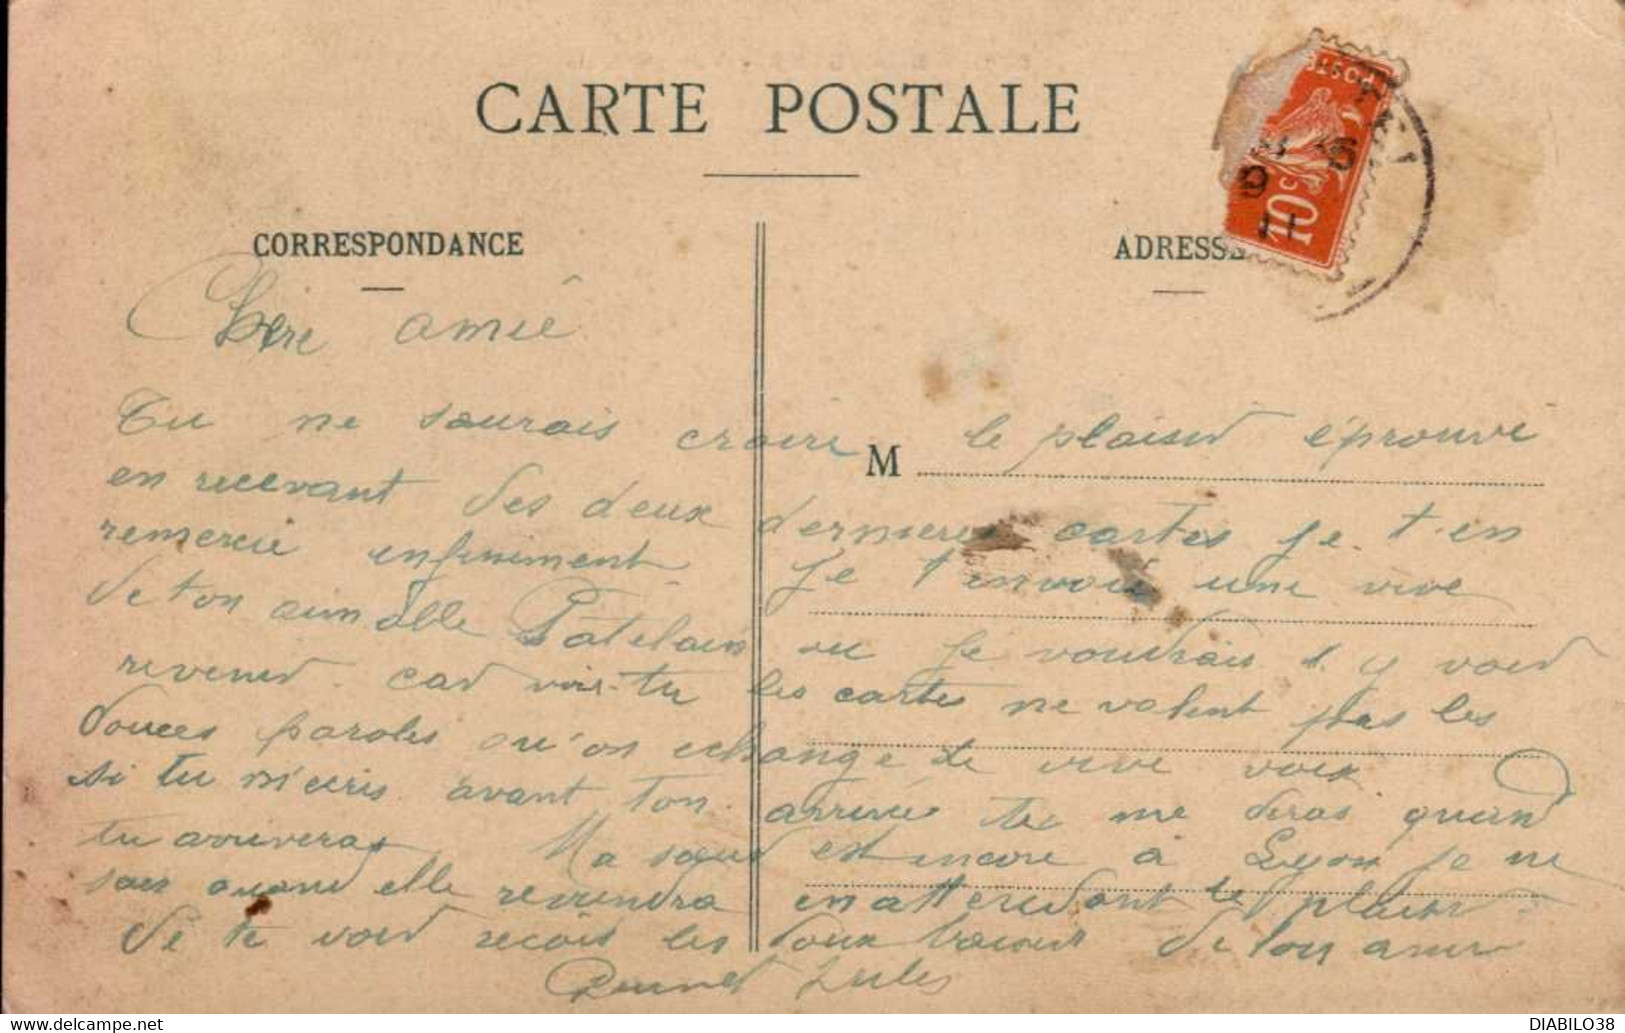 CARTE POSTALE
CORRESPONDANCE
ADRESSE
POSTES
10c
11
Chère amie
Tu ne saurais croire le plaisir éprouvé
M
en recevant des deux dernieres cartes je t'en
remercie infiniment. Je t'envoie une vive
de ton aimable Patelain ou je voudrais t'y voir
revenir. car vois-tu les cartes ne valent pas les
douces paroles qu'on echange de vive voix
si tu m'ecris avant ton arrivée tu me diras quand
tu arriveras Ma sœur est encore à Lyon je ne
sais quand elle reviendra en attendant le plaisir
de te voir reçois les doux baisers de ton ami
Jules
DIABILO38